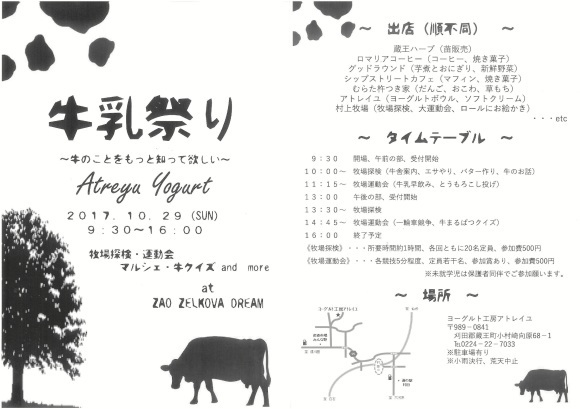 牛乳祭り
～牛のことをもっと知って欲しい～
Atreyu Yogurt
2017. 10. 29 (SUN)
9：30～16：00
牧場探検・運動会
マルシェ・牛クイズ and more
at
ZAO ZELKOVA DREAM
～ 出店（順不同） ～
蔵王ハーブ（苗販売）
ロマリアコーヒー（コーヒー、焼き菓子）
グッドラウンド（芋煮とおにぎり、新鮮野菜）
シップストリートカフェ（マフィン、焼き菓子）
むらた杵つき家（だんご、おこわ、草もち）
アトレイユ（ヨーグルトボウル、ソフトクリーム）
村上牧場（牧場探検、大運動会、ロールにお絵かき）
・・・etc
～ タイムテーブル ～
9：30 開場、午前の部、受付開始
10：00～ 牧場探検（牛舎案内、エサやり、バター作り、牛のお話）
11：15～ 牧場運動会（牛乳早飲み、とうもろこし投げ）
13：00 午後の部、受付開始
13：30～ 牧場探検
14：45～ 牧場運動会（一輪車競争、牛まるばつクイズ）
16：00 終了予定
《牧場探検》・・・所要時間約1時間、各回ともに20名定員、参加費500円
《牧場運動会》・・・各競技5分程度、定員若干名、参加賞あり、参加費500円
※未就学児は保護者同伴でご参加願います。
～ 場所 ～
ヨーグルト工房アトレイユ
〒989－0841
刈田郡蔵王町小村崎向原68－1
℡0224－22－7033
※駐車場有り
※小雨決行、荒天中止